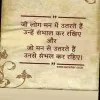 जो लोग मन में उतरते हैं
उन्हें संभाल कर रखिए
और
जो मन से उतरते हैं
उनसे संभल कर रहिए।